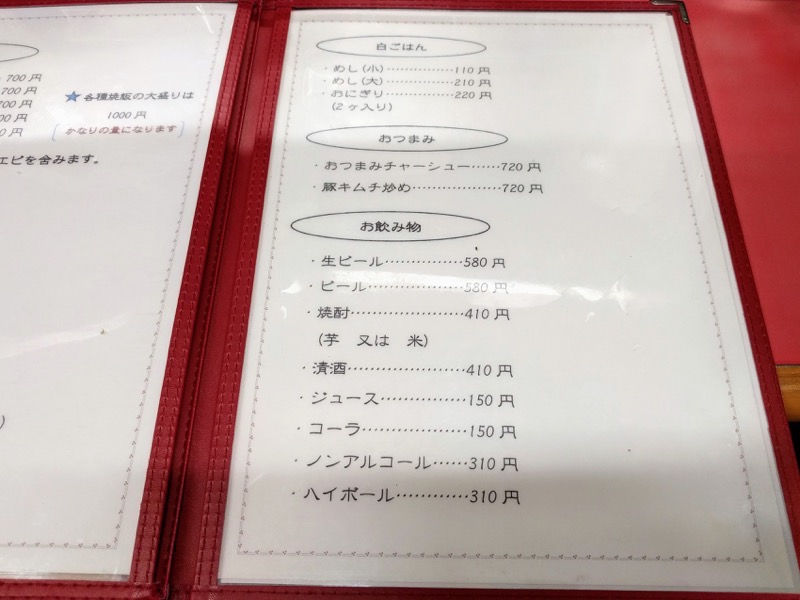 700 円
700 円
700 円
00 円
0 円
★各種焼飯の大盛りは
1000 円
(かなりの量になります)
エビを含みます。
白ごはん
・めし(小)……………110 円
・めし(大)……………210 円
・おにぎり……………220 円
(2ヶ入り)
おつまみ
・おつまみチャーシュー……720 円
・豚キムチ炒め………………720 円
お飲み物
・生ビール……………580 円
・ビール………………580 円
・焼酎…………………410 円
(芋 又は 米)
・清酒…………………410 円
・ジュース……………150 円
・コーラ………………150 円
・ノンアルコール……310 円
・ハイボール…………310 円